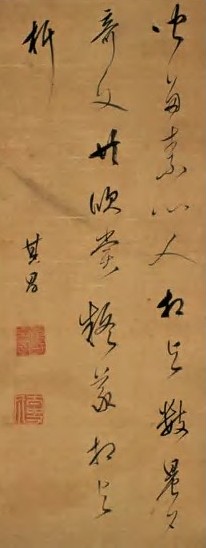 聞多素心人相與數晨夕
奇文共欣賞疑義相與
析
其昌